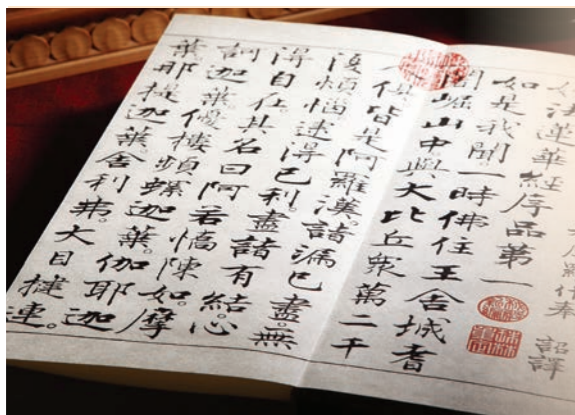 羅什奉 詔譯
法蓮華經序品第一
如是我聞。一時佛住王舍城耆
闍崛山中與大比丘眾萬二千
人俱皆是阿羅漢。諸漏已盡。無
復煩惱逮得己利。盡諸有結。心
得自在。其名曰阿若憍陳如。摩
訶迦葉。優樓頻螺迦葉。伽耶迦
葉。那提迦葉。舍利弗。大目揵連。